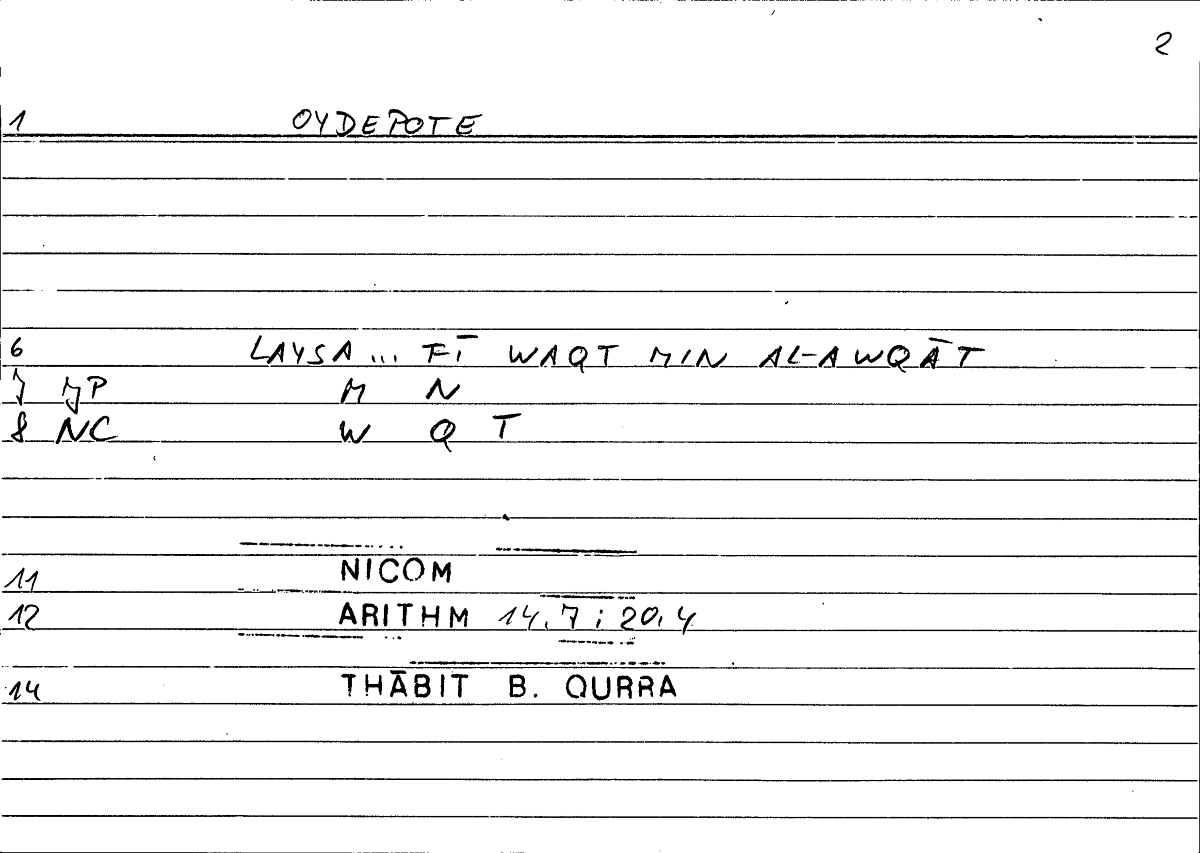 2
1 OYDEPOTE
6 LAYSA... FĪ WAQT MIN AL-AWQĀT
7 JP M N
8 NC W Q T
11 NICOM
12 ARITHM 14,7; 20,4
14 THĀBIT B. QURRA